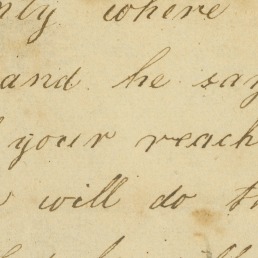 where
and he say
your reach
will do th